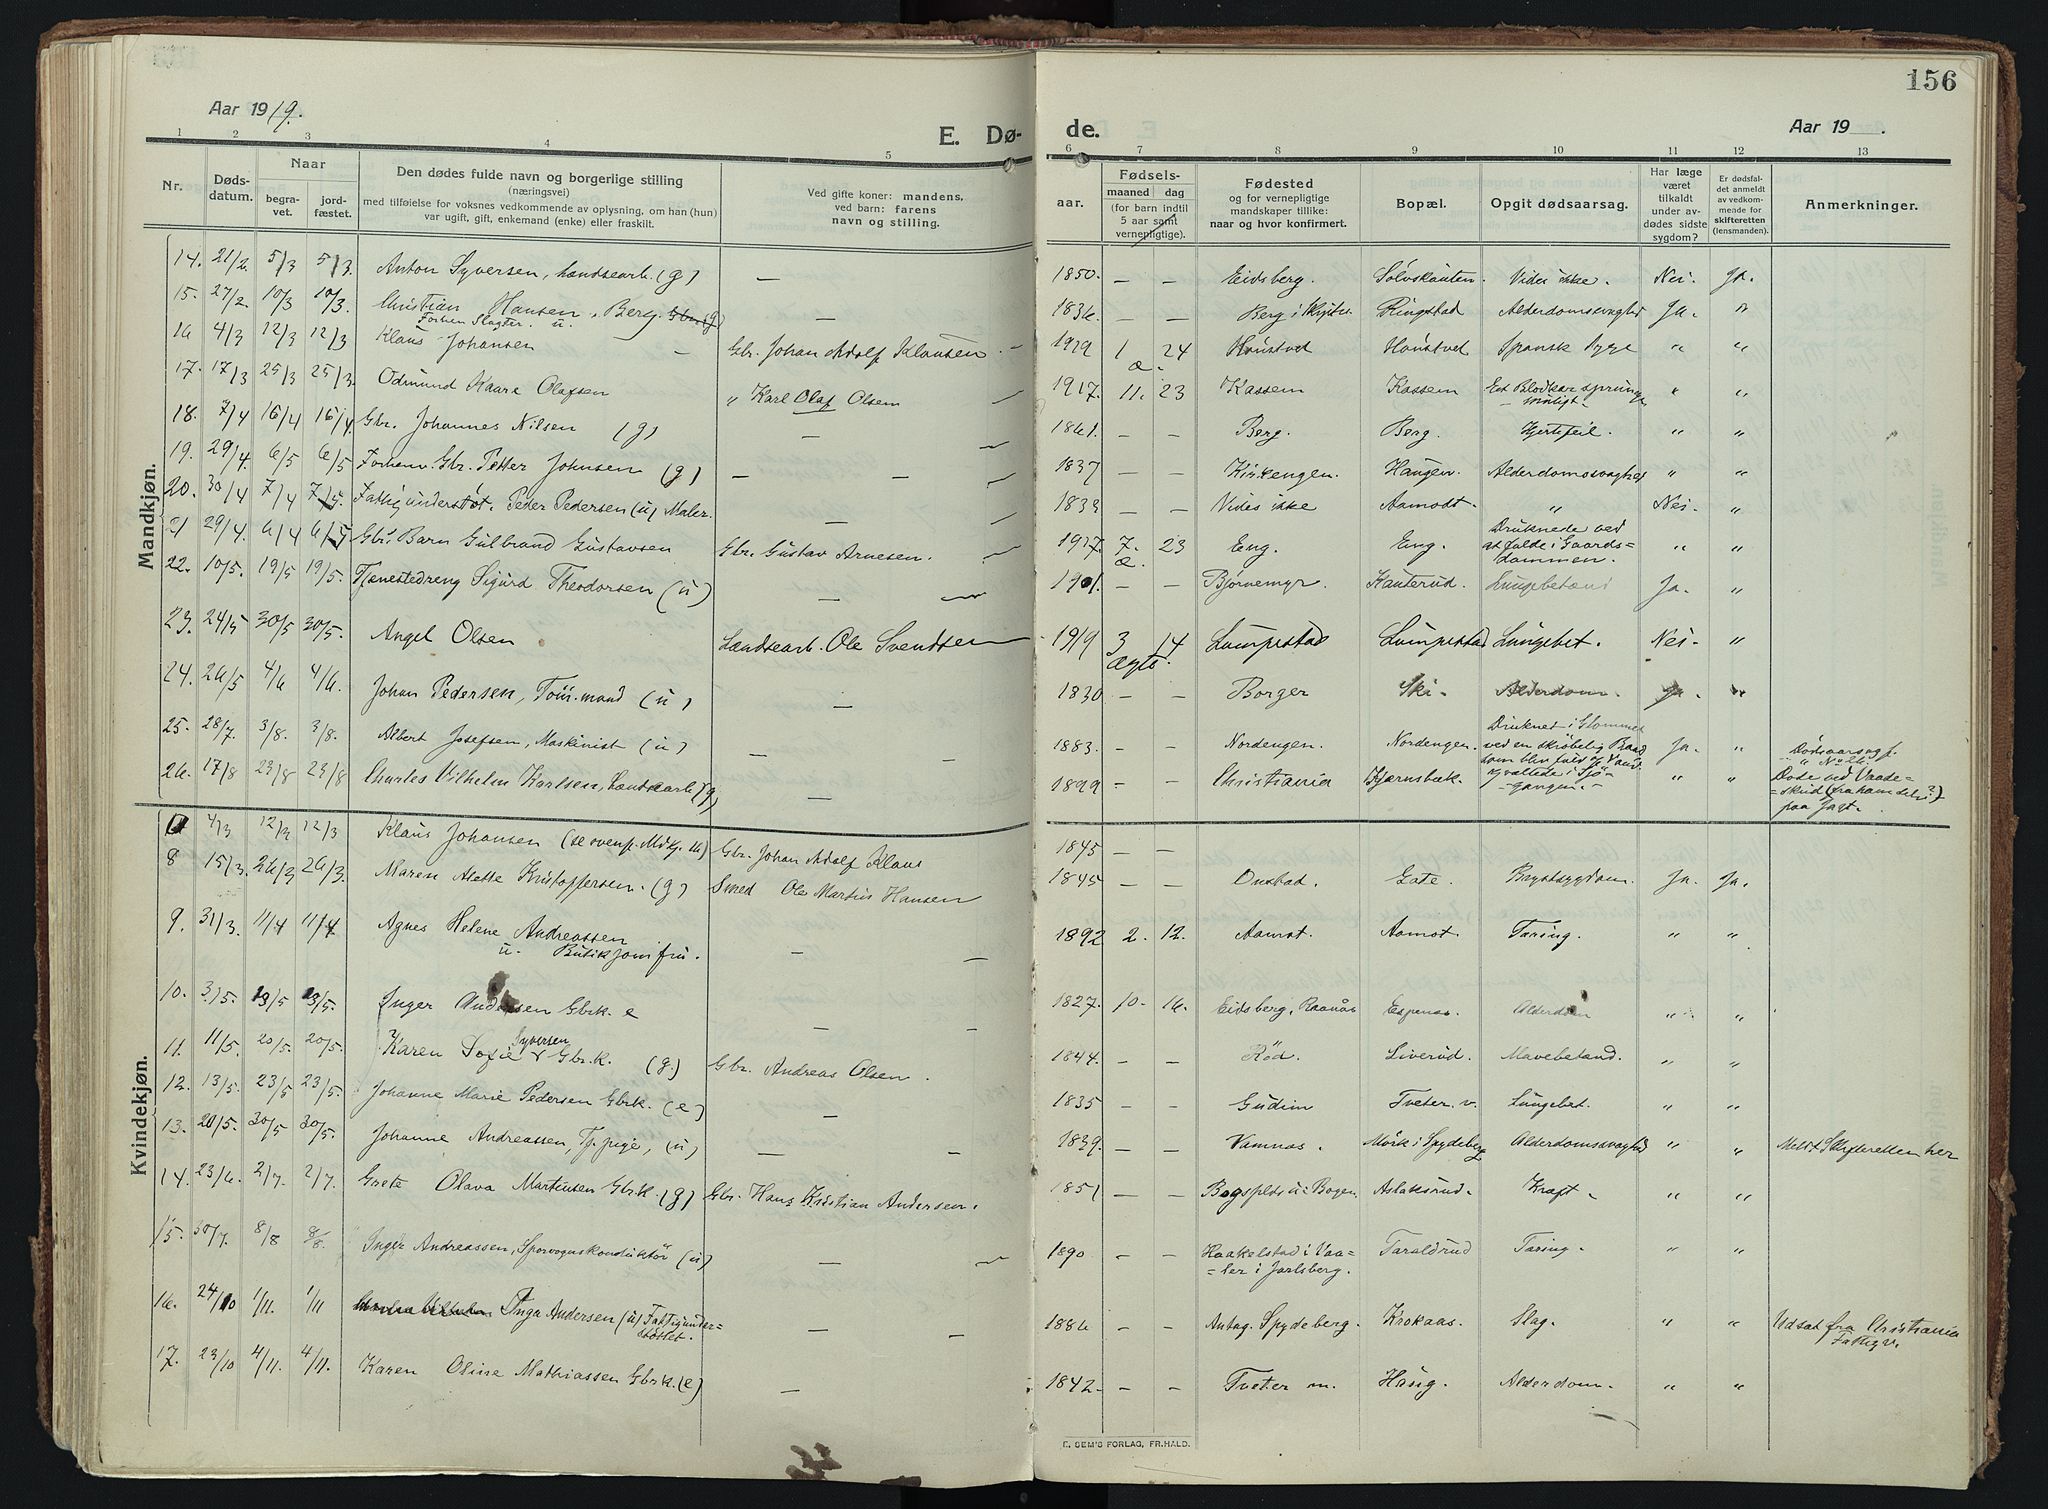 156
Aar 1919.
Aar 19 .
E. Dø-
de.
1 2 3 4 5 6 7 8 9 10 11 12 13
Nr.
Døds-
datum.
Naar
begra-
vet.
jord-
fæstet.
Den dødes fulde navn og borgerlige stilling
(næringsvei)
med tilføielse for voksnes vedkommende av oplysning, om han (hun)
var ugift, gift, enkemand (enke) eller fraskilt.
Ved gifte koner: mandens,
ved barn: farens
navn og stilling.
aar.
Fødsels-
maaned dag
(for barn indtil
5 aar samt
vernepligtige).
Fødested
og for vernepligtige
mandskaper tillike:
naar og hvor konfirmert.
Bopæl.
Opgit dødsaarsag.
Har læge
været
tilkaldt
under av-
dødes sidste
sygdom?
Er dødsfal-
det anmeldt
av vedkom-
mende for
skifteretten
(lensmanden).
Anmerkninger.
Mandkjøn.
14. 21/2. 5/3 5/3. Anton Syversen, Landsearb. (g) — 1850. — — Eidsberg. Sølvskauten. Vides ikke. Nei. Ja.
15. 27/2. 10/3 10/3. Christian Hansen, Berg. Gbr. (g) — 1836. — — Berg i Ringstad Alderdomsvaghed Ja. "
Forhen Slagter. u.
16 4/3 12/3 12/3 Klaus Johansen — Gbr. Johan Adolf Klausen. 1919 1 24 Haustvet Haustvet Spansk Syge " "
17. 17/3 25/3 25/3. Odmund Kaare Olafsen " Karl Olaf Olsen 1917. 11. 23 Kassem Kassem Et Blodkar sprunget " "
18. 7/4 16/4 16/4. Gbr. Johannes Nilsen (g) — 1861. — — Berg. Berg. Hjertefeil. " "
19. 29/4. 6/5 6/5 Forhenv. Gbr. Petter Johnsen (g) — — 1837 — — Kirkengen. Haugen. Alderdomssvaghed " "
20. 30/4 7/4 7/5. Fattigunderstøt. Peder Pedersen (u) Maler. — 1833 — — Vides ikke Aamodt. " Nei. "
21 29/4. 6/4 6/5 Gbr.s Barn Gulbrand Gustavsen Gbr. Gustav Arnesen. 1917. 7. 23 Eng. Eng. Druknede ved
at falde i Gaards=
dammen. " "
22. 10/5. 19/5 19/5. Tjenestedreng Sigurd Theodorsen (u) — 1901. — — Bjørnemyr. Kauterud. Lungebetænd Ja. "
23. 24/5 30/5 30/5. Angel Olsen Landsearb. Ole Svendsen 1919 3 14. Lumpestad Lumpestad Lungebet. Nei. "
24. 26/5 4/6 4/6. Johan Pedersen, Tom.mand (u) — 1830 — — Borger Ski. Alderdom. Ja. "
25. 28/7. 3/8. 3/8. Albert Josefsen, Maskinist (u) — 1883. — — Nordengen. Nordengen. Druknet i Glommen
ved en skrøbelig Baad
som blev fuld af Vand
og vælted i Sjø-
gangen. Ja. "
26. 17/8 23/8 23/8 Charles Vilhelm Karlsen, Landsearb (g) — 1899 — — Christiania Kjærnsbæk. " " Døde ved Vaade=
=skud (fra hamdels?)
paa Jagt.
Kvindekjøn.
4/3 12/3 12/3 Klaus Johansen (se ovenf. Mdkj. 16) Gbr. Johan Adolf Klaus 1845 — —
8 15/3. 26/3 26/3. Maren Anette Kristoffersen. (g) Smed Ole Martius Hansen 1845 — — Onstad. Gate. Brystsygdom. Ja. Ja.
9. 31/3. 11/4 11/4 Agnes Helene Andreassen
u. Butikjomfru. — — 1892 2. 12. Aamot. Aamot. Tæring. " "
10. 3/5. 13/5 13/5. Inger Andersen Gbrk. e — — 1827. 10. 16. Eidsberg, Raanås Espenæs. Alderdom " "
11. 11/5. 20/5. 20/5. Karen Sofie Syversen Gbr.k. (g.) Gbr. Andreas Olsen. 1844. — — Rød. Liverud. Mavebetænd. " "
12. 13/5. 23/5 23/5. Johanne Marie Pedersen Gbrk. (e) — 1835 — — Gudim Tveter. v. Lungebet. " "
13. 20/5. 30/5 30/5. Johanne Andreassen, Tj.pige, (u) — — 1839. — — Vamnæs. Mörk i Spydeberg Alderdomssvaghed " " Meldt Skifteretten her
14. 23/6. 2/7. 2/7. Grete Olava Martinsen Gbrk. (g) Gbr. Hans Kristian Andersen. 1851 — — Bogsplds u. Bogen. Aslaksrud. Kræft. " "
15. 30/7. 8/8 8/8. Inger Andreassen, Sporvognskonduktør (u) — 1890 — — Haakelstad i Vaa=
=ler i Jarlsberg. Taraldrud Tæring. " "
16. 24/10 1/11. 1/11 Inga Andersen (u) Fattigunder=
støttet. — — 1886 — — Antag. Spydeberg. Krokaas. Slag. " " Udsat fra Christiania
Fattigv.
17. 23/10 4/11. 4/11. Karen Oline Mathiassen Gbrk. (e) — 1842. — — Tveter m. Haug. Alderdom. " "
E. SEM'S FORLAG, FR.HALD.